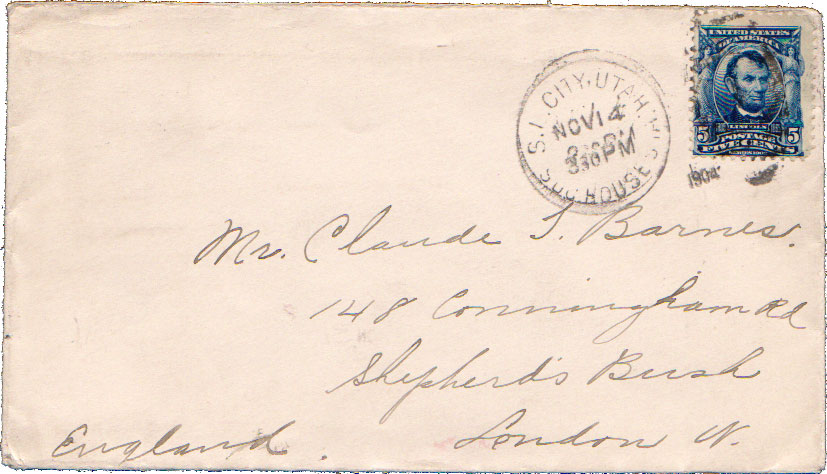 UNITED STATES
OF AMERICA
LINCOLN
5 POSTAGE 5
FIVE CENTS
S.L. CITY, UTAH.
NOV 14
3 30 PM
HOUSE
1904
Mr. Claude T. Barnes.
148 Conningham Rd
Shepherd's Bush
London W.
England.